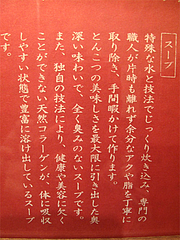 スープ
特殊な水と技法でじっくり炊き込み、専門の
職人が片時も離れず余分なアクや脂を丁寧に
取り除き、手間暇かけて作ります。
とんこつの美味しさを最大限に引き出した奥
深い味わいで、全く臭みのないスープです。
また、独自の技法により、健康や美容に欠く
ことができない天然コラーゲンが、体に吸収
しやすい状態で豊富に溶け出しているスープ
です。